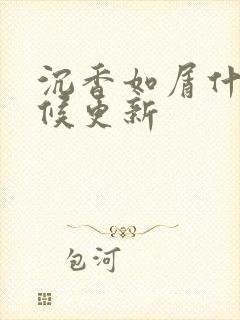 沉香如屑什
候更新
包河